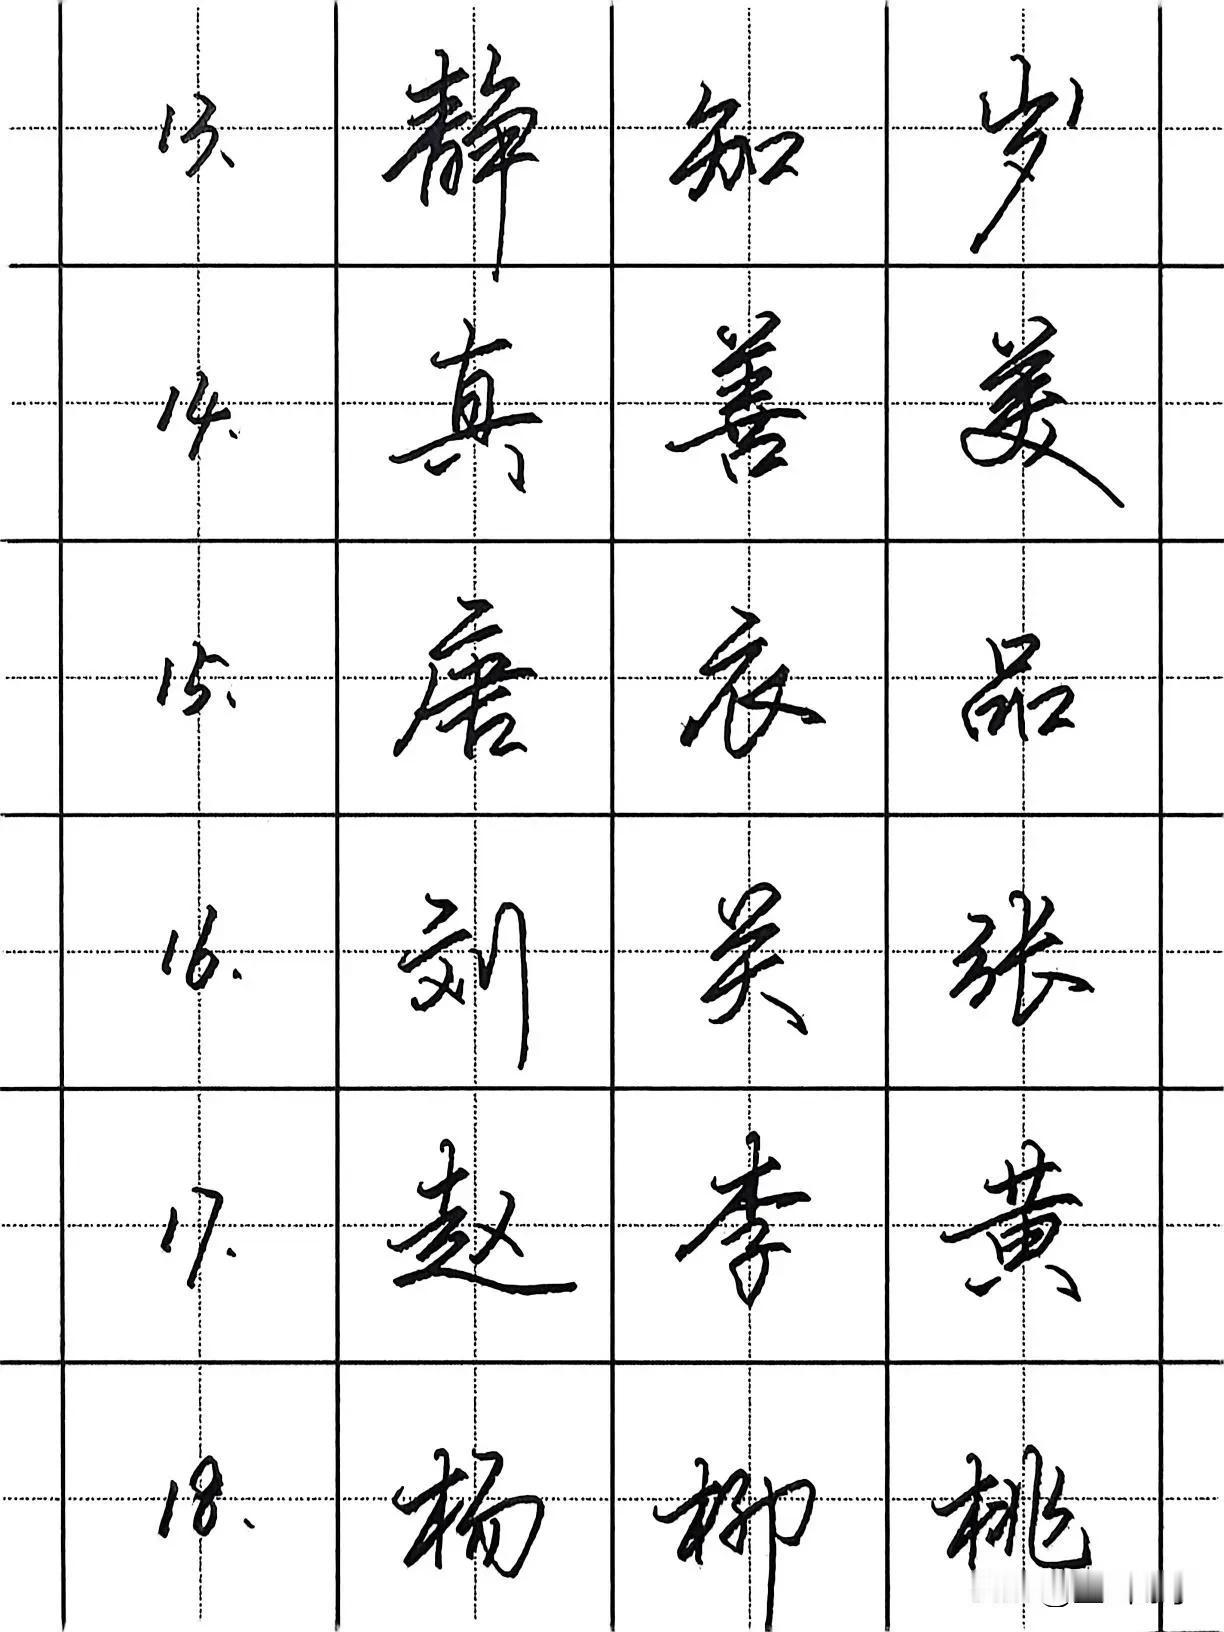 13、静知岁
14.真善美
15、唐衣品
16.刘关张
17.赵李黄
18.杨柳桃